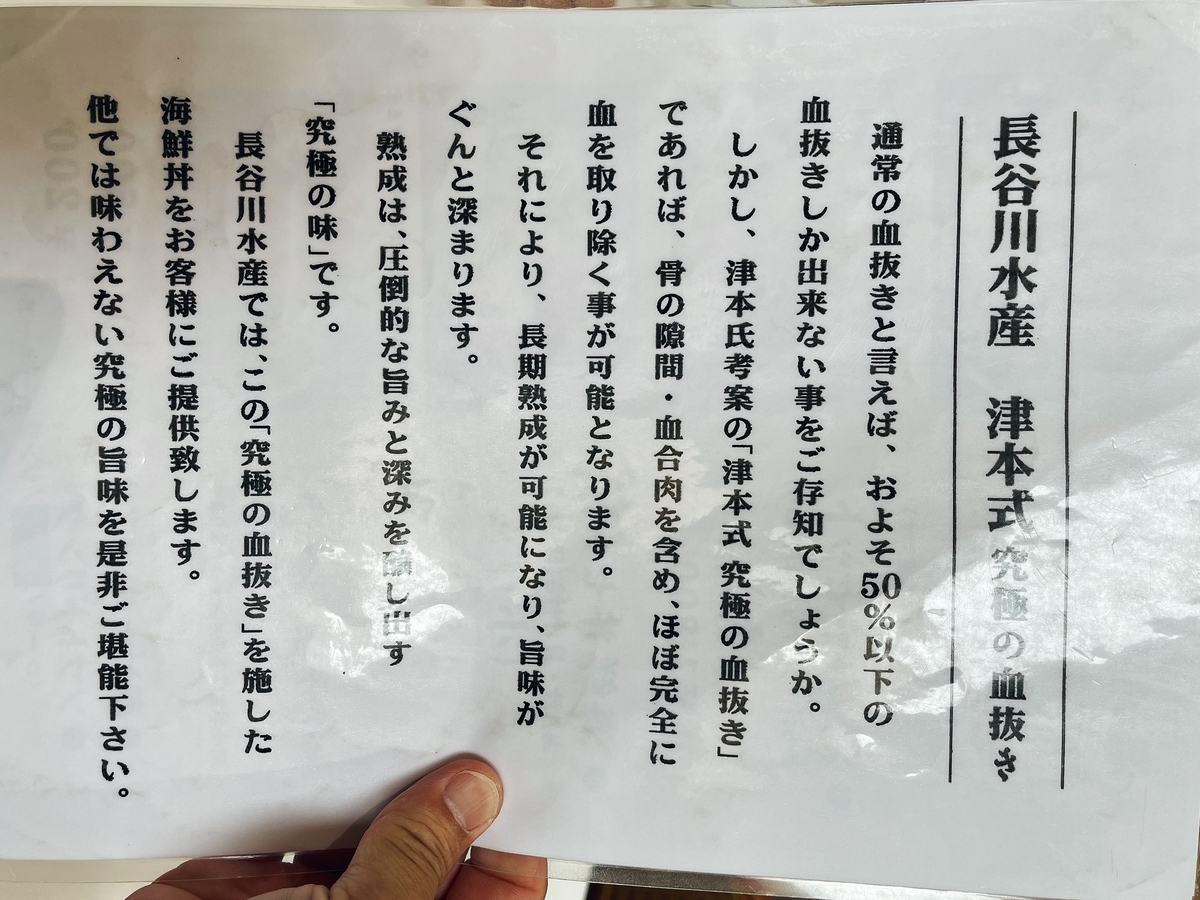 長谷川水産　津本式 究極の血抜き
通常の血抜きと言えば、およそ50％以下の
血抜きしか出来ない事をご存知でしょうか。
しかし、津本氏考案の「津本式 究極の血抜き」
であれば、骨の隙間・血合肉を含め、ほぼ完全に
血を取り除く事が可能となります。
それにより、長期熟成が可能になり、旨味が
ぐんと深まります。
熟成は、圧倒的な旨みと深みを醸し出す
「究極の味」です。
長谷川水産では、この「究極の血抜き」を施した
海鮮丼をお客様にご提供致します。
他では味わえない究極の旨味を是非ご堪能下さい。